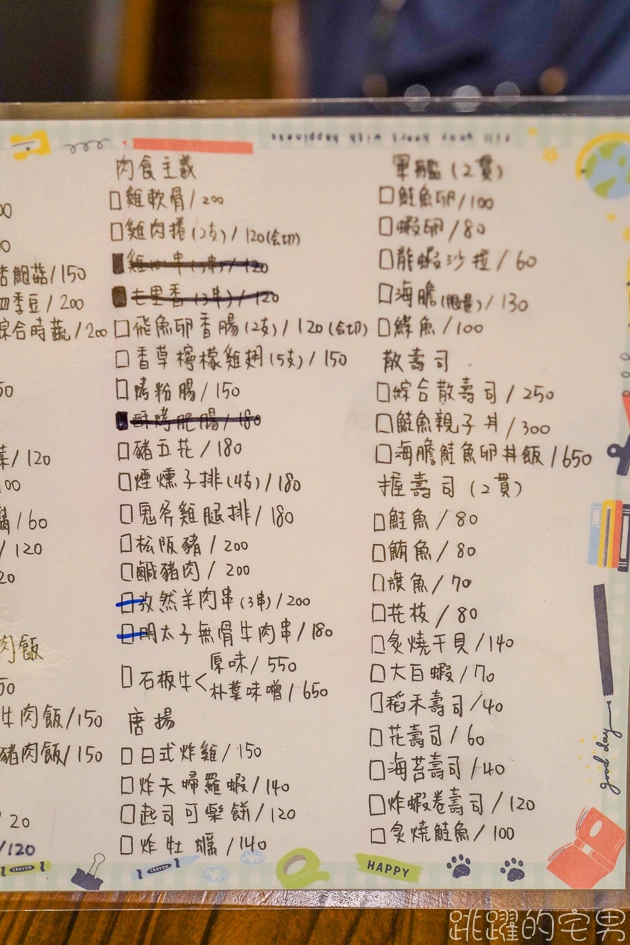 fill your heart with happiness
00
00
鮑菇/150
四季豆/200
綜合時蔬/200
50
/120
00
/60
/120
20
肉飯
50
牛肉飯/150
豬肉飯/150
20
/120
肉食主義
雞軟骨/200
雞肉捲(2支)/120(含切)
七里香(3串)/120
飛魚卵香腸(2支)/120(含切)
香草檸檬雞翅(5支)/150
烤粉腸/150
酥烤肥腸/180
豬五花/180
煙燻子排(4支)/180
鬼斧雞腿排/180
松阪豬/200
鹹豬肉/200
孜然羊肉串(3串)/200
明太子無骨牛肉串/180
石板牛<原味/550
朴葉味噌/650
唐揚
日式炸雞/150
炸天婦羅蝦/140
起司可樂餅/120
炸牡蠣/140
軍艦(2貫)
鮭魚卵/100
蝦卵/80
龍蝦沙拉/60
海膽/130
鰈魚/100
散壽司
綜合散壽司/250
鮭魚親子丼/300
海膽鮭魚卵丼飯/650
握壽司(2貫)
鮭魚/80
鮪魚/80
旗魚/70
花枝/80
炙燒干貝/140
大白蝦/70
稻禾壽司/40
花壽司/60
海苔壽司/40
炸蝦卷壽司/120
炙燒鮭魚/100
good day
CRAYON
CRAYON
HAPPY
跳躍的宅男